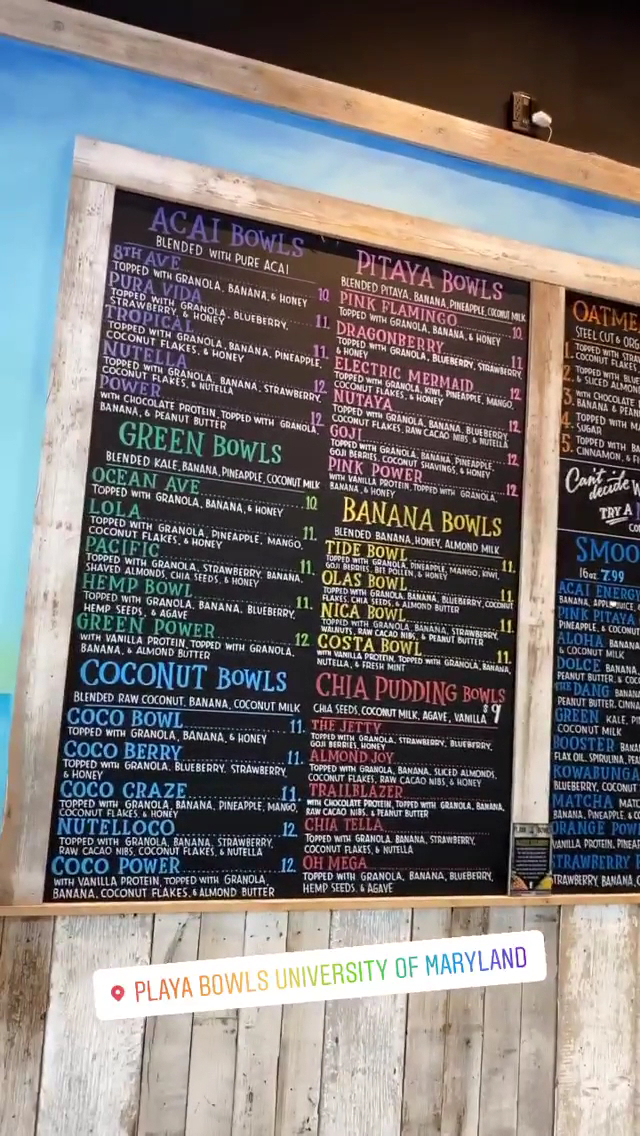 ACAI BOWLS
BLENDED WITH PURE ACAI
8TH AVE 10.
TOPPED WITH GRANOLA, BANANA, & HONEY
PURA VIDA 11.
TOPPED WITH GRANOLA, BLUEBERRY,
STRAWBERRY, & HONEY
TROPICAL 11.
TOPPED WITH GRANOLA, BANANA, PINEAPPLE,
COCONUT FLAKES, & HONEY
NUTELLA 12.
TOPPED WITH GRANOLA, BANANA, STRAWBERRY,
COCONUT FLAKES, & NUTELLA
POWER 12.
WITH CHOCOLATE PROTEIN, TOPPED WITH GRANOLA,
BANANA, & PEANUT BUTTER
GREEN BOWLS
BLENDED KALE, BANANA, PINEAPPLE, COCONUT MILK
OCEAN AVE 10
TOPPED WITH GRANOLA, BANANA, & HONEY
LOLA 11.
TOPPED WITH GRANOLA, PINEAPPLE, MANGO,
COCONUT FLAKES, & HONEY
PACIFIC 11.
TOPPED WITH GRANOLA, STRAWBERRY, BANANA,
SHAVED ALMONDS, CHIA SEEDS, & HONEY
HEMP BOWL 11.
TOPPED WITH GRANOLA, BANANA, BLUEBERRY,
HEMP SEEDS, & AGAVE
GREEN POWER 12.
WITH VANILLA PROTEIN, TOPPED WITH GRANOLA,
BANANA, & ALMOND BUTTER
COCONUT BOWLS
BLENDED RAW COCONUT, BANANA, COCONUT MILK
COCO BOWL 11.
TOPPED WITH GRANOLA, BANANA, & HONEY
COCO BERRY 11.
TOPPED WITH GRANOLA, BLUEBERRY, STRAWBERRY,
& HONEY
COCO CRAZE 11.
TOPPED WITH GRANOLA, BANANA, PINEAPPLE, MANGO,
COCONUT FLAKES, & HONEY
NUTELLOCO 12.
TOPPED WITH GRANOLA, BANANA, STRAWBERRY,
RAW CACAO NIBS, COCONUT FLAKES, & NUTELLA
COCO POWER 12.
WITH VANILLA PROTEIN, TOPPED WITH GRANOLA,
BANANA, COCONUT FLAKES, & ALMOND BUTTER
PITAYA BOWLS
BLENDED PITAYA, BANANA, PINEAPPLE, COCONUT MILK
PINK FLAMINGO 10.
TOPPED WITH GRANOLA, BANANA, & HONEY
DRAGONBERRY 11.
TOPPED WITH GRANOLA, BLUEBERRY, STRAWBERRY,
& HONEY
ELECTRIC MERMAID 12.
TOPPED WITH GRANOLA, KIWI, PINEAPPLE, MANGO,
COCONUT FLAKES, & HONEY
NUTAYA 12.
TOPPED WITH GRANOLA, BANANA, BLUEBERRY,
COCONUT FLAKES, RAW CACAO NIBS, & NUTELLA
GOJI 12.
TOPPED WITH GRANOLA, BANANA, PINEAPPLE,
GOJI BERRIES, COCONUT SHAVINGS, & HONEY
PINK POWER 12.
WITH VANILLA PROTEIN, TOPPED WITH GRANOLA,
BANANA, & HONEY
BANANA BOWLS
BLENDED BANANA, HONEY, ALMOND MILK
TIDE BOWL 11.
TOPPED WITH GRANOLA, PINEAPPLE, MANGO, KIWI,
GOJI BERRIES, BEE POLLEN, & HONEY
OLAS BOWL 11.
TOPPED WITH GRANOLA, BLUEBERRY, COCONUT
FLAKES, CHIA SEEDS, & ALMOND BUTTER
NICA BOWL 11.
TOPPED WITH GRANOLA, BANANA, STRAWBERRY,
WALNUTS, RAW CACAO NIBS, & PEANUT BUTTER
COSTA BOWL 11.
WITH VANILLA PROTEIN, TOPPED WITH GRANOLA, BANANA,
NUTELLA, & FRESH MINT
CHIA PUDDING BOWLS
CHIA SEEDS, COCONUT MILK, AGAVE, VANILLA $9
THE JETTY
TOPPED WITH GRANOLA, STRAWBERRY, BLUEBERRY,
GOJI BERRIES, HONEY
ALMOND JOY
TOPPED WITH GRANOLA, BANANA, SLICED ALMONDS,
COCONUT FLAKES, RAW CACAO NIBS, & HONEY
TRAILBLAZER
WITH CHOCOLATE PROTEIN, TOPPED WITH GRANOLA, BANANA,
RAW CACAO NIBS, & PEANUT BUTTER
CHIA TELLA
TOPPED WITH GRANOLA, BANANA, STRAWBERRY,
COCONUT FLAKES, & NUTELLA
OH MEGA
TOPPED WITH GRANOLA, BANANA, BLUEBERRY,
HEMP SEEDS, & AGAVE
OATME
STEEL CUT & ORG
1. TOPPED WITH
COCONUT FLAKES
2. TOPPED WITH
& SLICED ALMON
3. WITH CHOCOLATE
BANANA & PEA
4. TOPPED WITH
SUGAR
5. TOPPED WITH
CINNAMON, &
Can't
decide
TRY A
SMOO
16oz 7.99
ACAI ENERGY
BANANA, APPLE JUICE
PINK PITAYA
PINEAPPLE, & COCON
ALOHA BANANA
& COCONUT MILK
DOLCE BANANA
PEANUT BUTTER, & COCO
THE DANG BANANA
PEANUT BUTTER, CINNA
GREEN KALE,
COCONUT MILK
BOOSTER BANAN
FLAX OIL, SPIRULINA, PEA
KOWABUNGA
BLUEBERRY, COCONUT
MATCHA MATC
BANANA, PINEAPPLE, & CO
ORANGE POW
VANILLA PROTEIN, PINE
STRAWBERRY
STRAWBERRY, BANANA,
PLAYA BOWLS UNIVERSITY OF MARYLAND